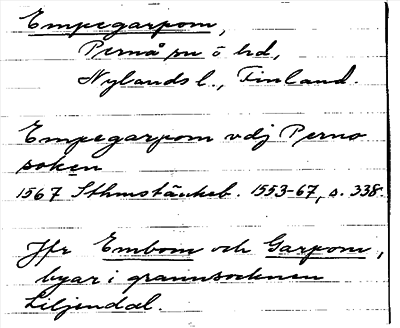 Empegarpom,
Pernå sn ö hd,
Nylands l., Finland.
Empegarpom vdj Perno
soken
1567 Sthmstänkeb. 1553-67, s. 338.
Jfr Embom och Garpom,
byar i grannsocknen
Liljendal.